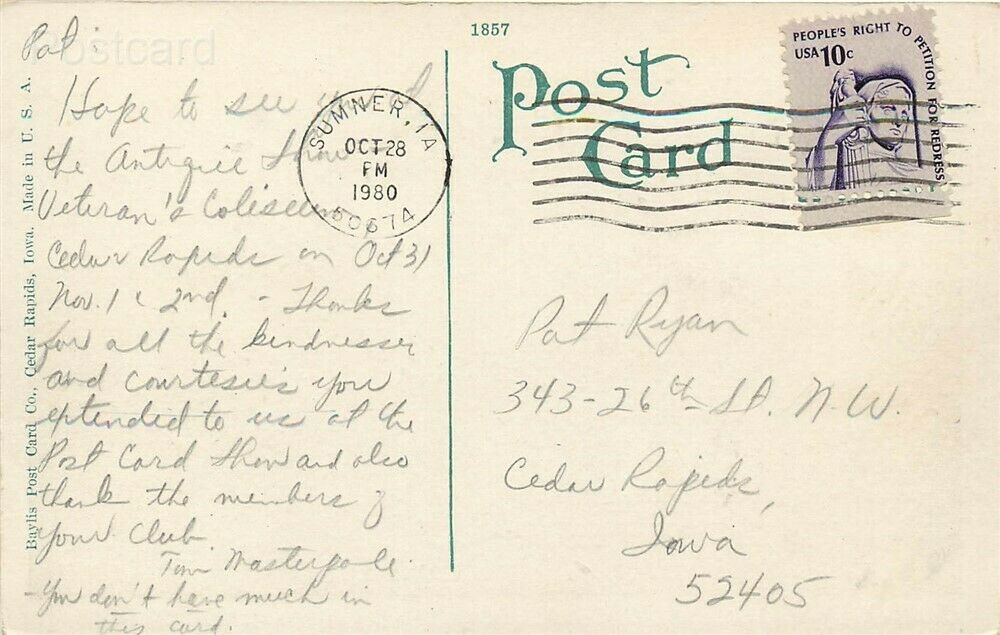 Postcard
Pat:
Hope to see you at
the Antique Show
Veteran's Coliseum
Cedar Rapids on Oct 31
Nov. 1 & 2nd. - Thanks
for all the kindnesses
and courtesies you
extended to us at the
Post Card Show and also
thank the members of
your Club.
Tom
- You don't have much in
this card.
Baylis Post Card Co., Cedar Rapids, Iowa. Made in U. S. A.
SUMNER, IA
OCT 28
PM
1980
50674
1857
Post
Card
PEOPLE'S RIGHT TO PETITION FOR REDRESS
USA 10c
Pat Ryan
343-26th St. N.W.
Cedar Rapids,
Iowa
52405